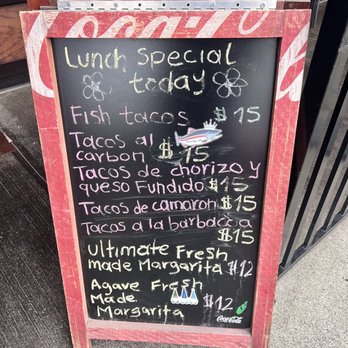 Coca-Cola
Lunch Special
today
Fish tacos $15
Tacos al
carbon $15
Tacos de chorizo y
queso Fundido $15
Tacos de camaron $15
Tacos a la barbacca
$15
Ultimate Fresh
made Margarita $12
Agave Fresh
Made $12
Margarita
Coca-Cola